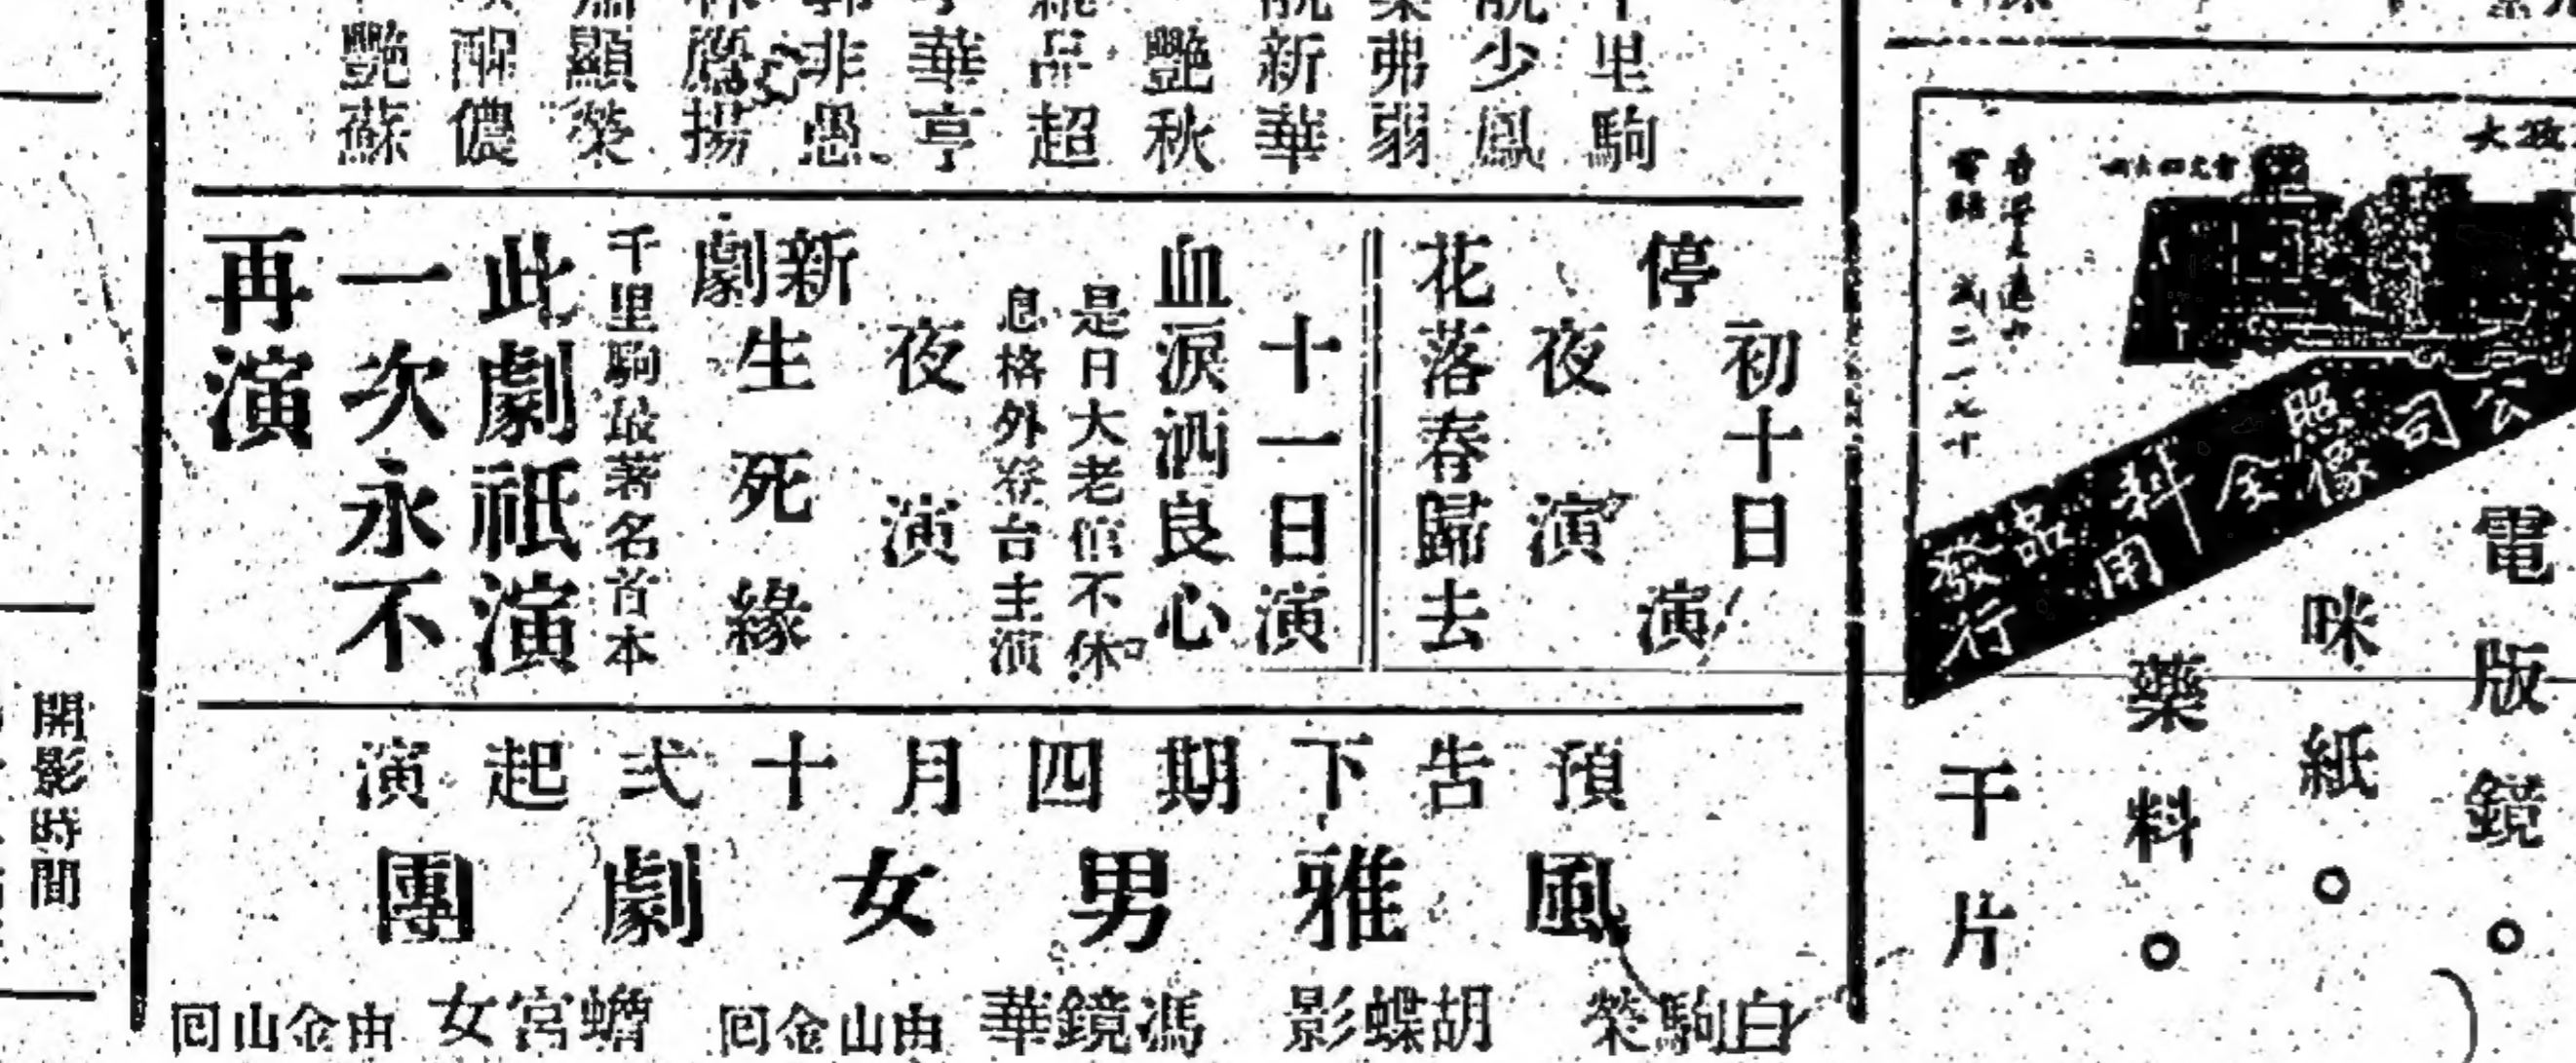 里駒
少鳳
弗弱
新華
艷秋
超
華亨
非愚
揚
顯榮
儂
艷蘇
初十日
停演
夜演
花落春歸去
十一日演
血淚洒良心
是日大老倌不休
息格外登台主演
夜演
新劇
生死緣
千里駒最著名首本
此劇祇演
一次永不
再演
預告下期四月十弍起演
風雅男女劇團
白駒榮
胡蝶影
馮鏡華
由金山回
蟾宮女
由金山回
公司
照像
全
料用
品
發行
電版鏡。
咪紙。
藥料。
干片
開影時間